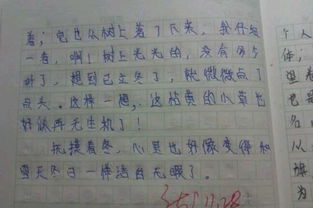 着；它也从树上着了下来，我仔细
一看，啊！树上光光的，没有多少
叶了，想到已立冬了，就微微点了
点头。这样一想，这枯黄的小草也
好似再无生机了！
抚摸着冬，心里也好像变得和
今天冬日一样洁白无暇了。
个人
体；
也是
名
从
旗
为